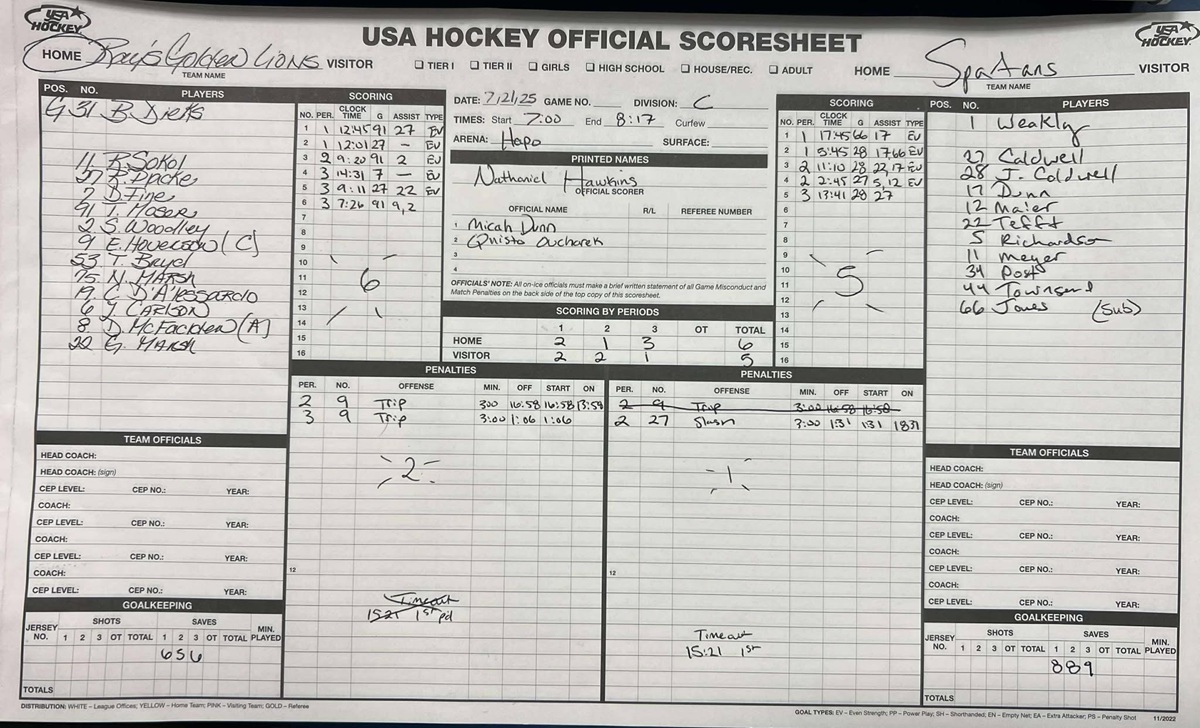 USA HOCKEY
USA HOCKEY OFFICIAL SCORESHEET
USA HOCKEY
HOME Ray's Golden Lions VISITOR
TEAM NAME
☐ TIER I ☐ TIER II ☐ GIRLS ☐ HIGH SCHOOL ☐ HOUSE/REC. ☐ ADULT
HOME Spartans VISITOR
TEAM NAME
POS. NO. PLAYERS
G 31 B. Dieks
11 R. Sokol
27
7 D. Fine
91 T. Hoser
2 S. Woodley
9 E. Hoverson (C)
53 T. Bryd
75 N. Marsh
19 C. D'Alessardio
6 J. Carlson
8 D. McFadden (A)
22 G. Marsh
SCORING
NO. PER. CLOCK TIME G ASSIST TYPE
1 1 12:45 91 27 EV
2 1 12:01 27 – EV
3 2 9:20 91 2 EV
4 3 14:31 7 – EV
5 3 9:11 27 22 EV
6 3 7:26 91 9,2
7
8
9
10
11
12
13
14
15
16
6
DATE: 7/21/25 GAME NO. DIVISION: C
TIMES: Start 7:00 End 8:17 Curfew
ARENA: Hapo SURFACE:
PRINTED NAMES
Nathaniel Hawkins
OFFICIAL SCORER
OFFICIAL NAME R/L REFEREE NUMBER
1 Micah Dunn
2 Quisto Oucharek
3
4
OFFICIALS' NOTE: All on-ice officials must make a brief written statement of all Game Misconduct and
Match Penalties on the back side of the top copy of this scoresheet.
SCORING BY PERIODS
1 2 3 OT TOTAL
HOME 2 1 3 6
VISITOR 2 2 1 5
SCORING
NO. PER. CLOCK TIME G ASSIST TYPE
1 1 17:45 66 17 EV
2 1 5:45 28 17,66 EV
3 2 11:10 28 22,17 EV
4 2 2:45 27 5,12 EV
5 3 13:41 28 27
6
7
8
9
10
11
12
13
14
15
16
5
POS. NO. PLAYERS
1 Weakly
27 Caldwell
28 J. Caldwell
17 Dunn
12 Maier
22 Tefft
5 Richardson
11 Meyer
34 Post
44 Townsend
66 Jones (Sub)
PENALTIES
PER. NO. OFFENSE MIN. OFF START ON
2 9 Trip 3:00 16:58 16:58 13:59
3 9 Trip 3:00 1:06 1:06
2
12
Timeout
15:21 1st pd
PENALTIES
PER. NO. OFFENSE MIN. OFF START ON
2 9 Trip 3:00 16:58 16:58
2 27 Slash 3:00 1:31 1:31 1831
1
12
Timeout
15:21 1st
TEAM OFFICIALS
HEAD COACH:
HEAD COACH: (sign)
CEP LEVEL: CEP NO.: YEAR:
COACH:
CEP LEVEL: CEP NO.: YEAR:
COACH:
CEP LEVEL: CEP NO.: YEAR:
COACH:
CEP LEVEL: CEP NO.: YEAR:
GOALKEEPING
JERSEY NO. SHOTS SAVES MIN. PLAYED
1 2 3 OT TOTAL 1 2 3 OT TOTAL
6 5 6
TOTALS
TEAM OFFICIALS
HEAD COACH:
HEAD COACH: (sign)
CEP LEVEL: CEP NO.: YEAR:
COACH:
CEP LEVEL: CEP NO.: YEAR:
COACH:
CEP LEVEL: CEP NO.: YEAR:
COACH:
CEP LEVEL: CEP NO.: YEAR:
GOALKEEPING
JERSEY NO. SHOTS SAVES MIN. PLAYED
1 2 3 OT TOTAL 1 2 3 OT TOTAL
8 8 9
TOTALS
DISTRIBUTION: WHITE – League Offices; YELLOW – Home Team; PINK – Visiting Team; GOLD – Referee
GOAL TYPES: EV – Even Strength; PP – Power Play; SH – Shorthanded; EN – Empty Net; EA – Extra Attacker; PS – Penalty Shot 11/2022